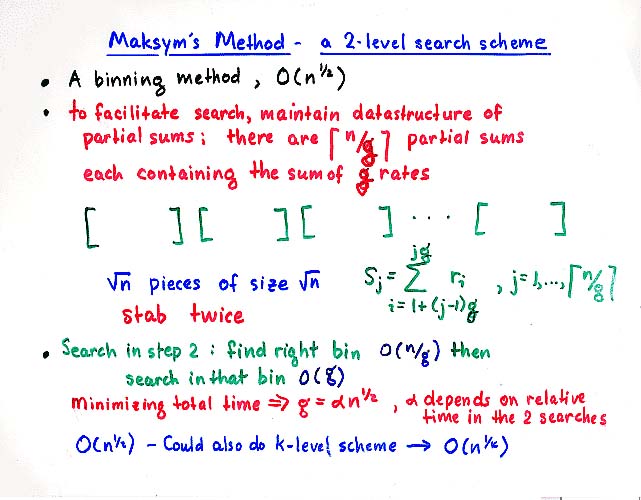 Maksym's Method - a 2-level search scheme
• A binning method, O(n^{1/2})
• to facilitate search, maintain datastructure of
partial sums; there are ⌈n/g⌉ partial sums
each containing the sum of g rates
[ ] [ ] [ ] ... [ ]
√n pieces of size √n S_j = Σ_{i=1+(j-1)g}^{jg} r_i , j=1,...,⌈n/g⌉
stab twice
• Search in step 2: find right bin O(n/g) then
search in that bin O(g)
Minimizing total time ⇒ g = αn^{1/2}, α depends on relative
time in the 2 searches
O(n^{1/2}) - Could also do k-level scheme → O(n^{1/k})